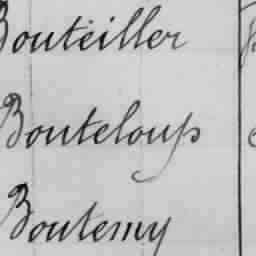 Bouteiller
Bouteloup
Boutemy